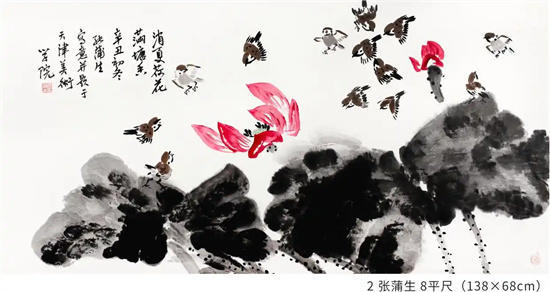 消夏荷花
满塘香
辛丑初冬
张蒲生
写意并长于
天津美術
学院
2 张蒲生 8平尺（138×68cm）